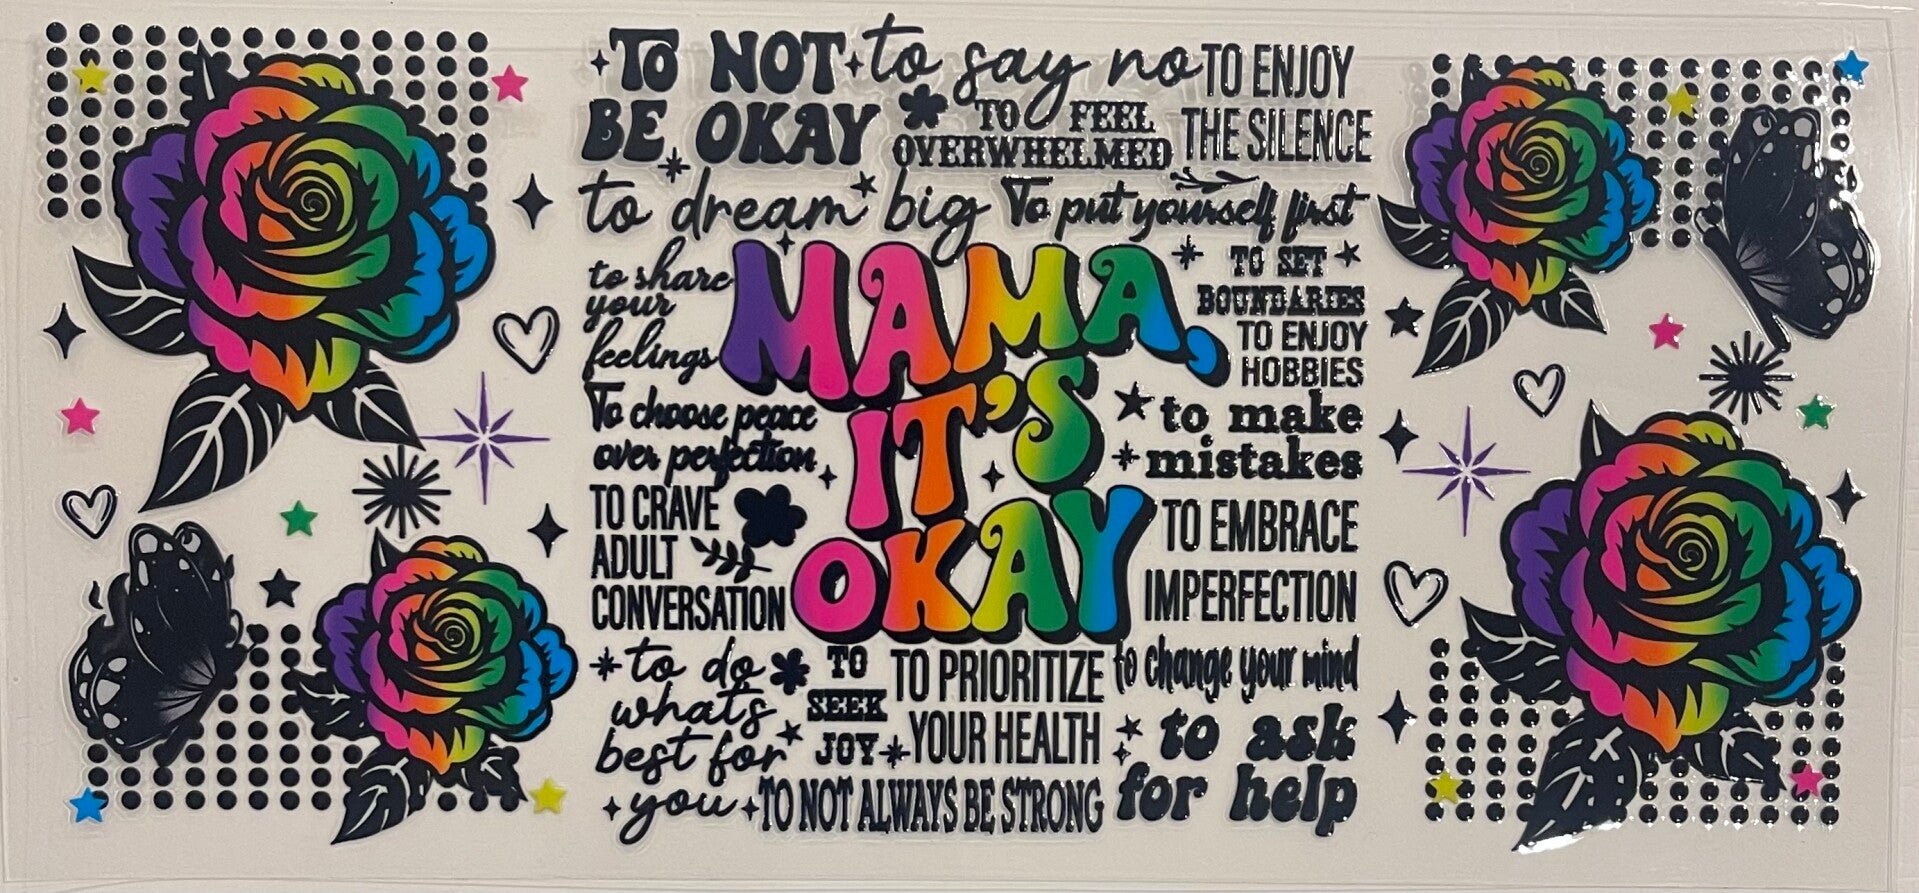 TO NOT
BE OKAY
to say no
TO FEEL
OVERWHELMED
TO ENJOY
THE SILENCE
to dream big
To put yourself first
to share
your
feelings
MAMA,
IT'S
OKAY
TO SET
BOUNDARIES
TO ENJOY
HOBBIES
To choose peace
over perfection
to make
mistakes
TO CRAVE
ADULT
CONVERSATION
TO EMBRACE
IMPERFECTION
to do
what's
best for
you
TO
SEEK
JOY
TO PRIORITIZE
YOUR HEALTH
to change your mind
TO NOT ALWAYS BE STRONG
to ask
for help